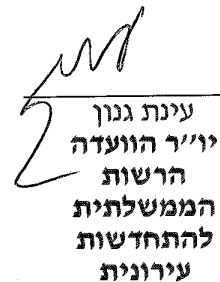 עינת גנון
יו״ר הוועדה
הרשות
הממשלתית
להתחדשות
עירונית